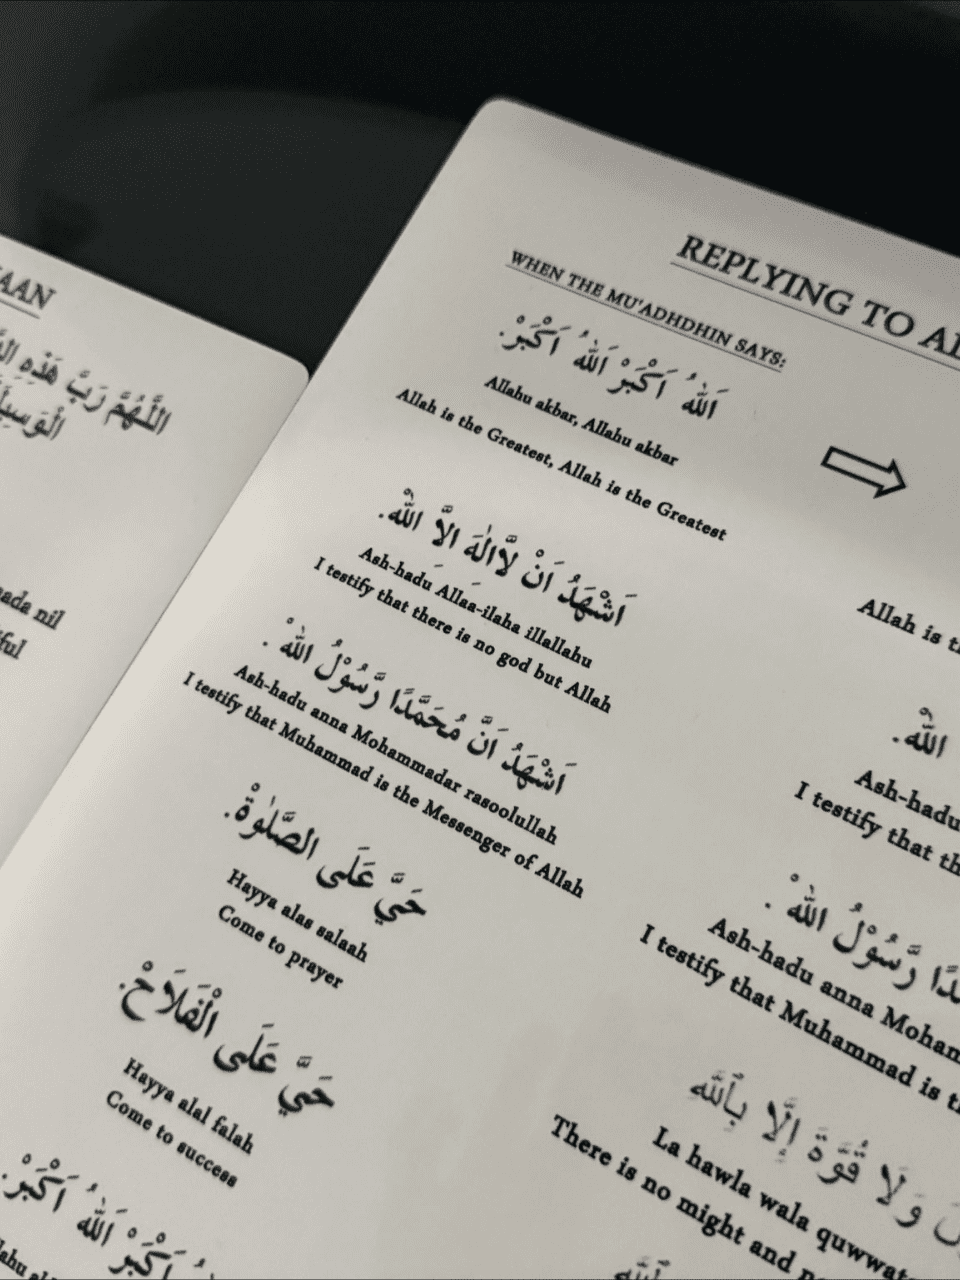 هَذِهِ
اَللّٰهُمَّ رَبَّ
REPLYING TO
WHEN THE MU'ADHDHIN SAYS:
اَللّٰهُ اَكْبَرْ اَللّٰهُ اَكْبَرْ.
Allahu akbar, Allahu akbar
Allah is the Greatest, Allah is the Greatest
اَشْهَدُ اَنْ لَّااِلٰهَ اِلاَّ اللّٰه.
Ash-hadu Allaa-ilaha illallahu
I testify that there is no god but Allah
اَشْهَدُ اَنَّ مُحَمَّدًا رَّسُوْلُ اللّٰه.
Ash-hadu anna Mohammadar rasoolullah
I testify that Muhammad is the Messenger of Allah
حَيَّ عَلَى الصَّلٰوةْ.
Hayya alas salaah
Come to prayer
حَيَّ عَلَى الْفَلَاحْ.
Hayya alal falah
Come to success
اَللّٰهُ اَكْبَرْ
Allah is
اللّٰه.
Ash-hadu
I testify that
رَّسُوْلُ اللّٰه.
Ash-hadu anna
I testify that Muhammad is
وَلَا قُوَّةَ إِلَّا بِٱللّٰهِ
La hawla wala
There is no might and